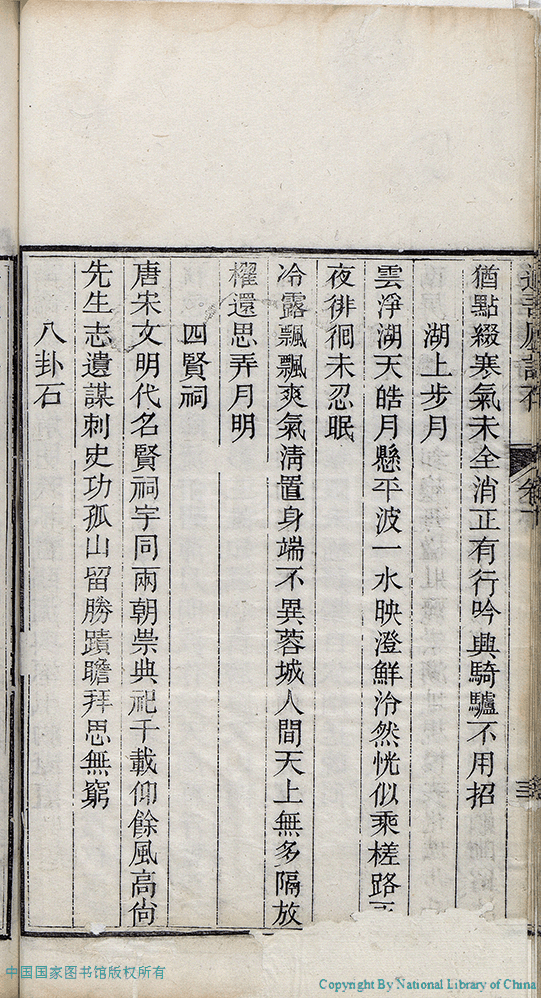 猶點綴寒氣未全消正有行吟興騎驢不用招
湖上步月
雲淨湖天皓月懸平波一水映澄鮮泠然恍似乘槎路
夜徘徊未忍眠
冷露飄飄爽氣淸置身端不異蓉城人間天上無多隔放
櫂還思弄月明
四賢祠
唐宋文明代名賢祠宇同兩朝崇典祀千載仰餘風高尙
先生志遺謀刺史功孤山留勝蹟瞻拜思無窮
八卦石
中国国家图书馆版权所有
Copyright By National Library of China